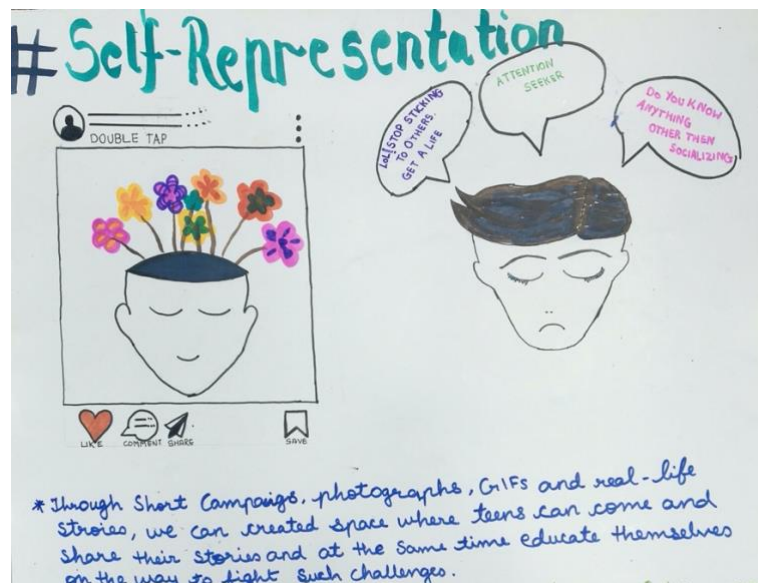 #Self-Representation
DOUBLE TAP
LOL! STOP STICKING
TO OTHERS.
GET A LIFE
ATTENTION
SEEKER
DO YOU KNOW
ANYTHING
OTHER THEN
SOCIALIZING
LIKE COMMENT SHARE SAVE
* Through Short Campaigs, photographs, GIFs and real-life
stroies, we can created space where teens can come and
share their stories and at the same time educate themselves
on the way to fight such challenges.